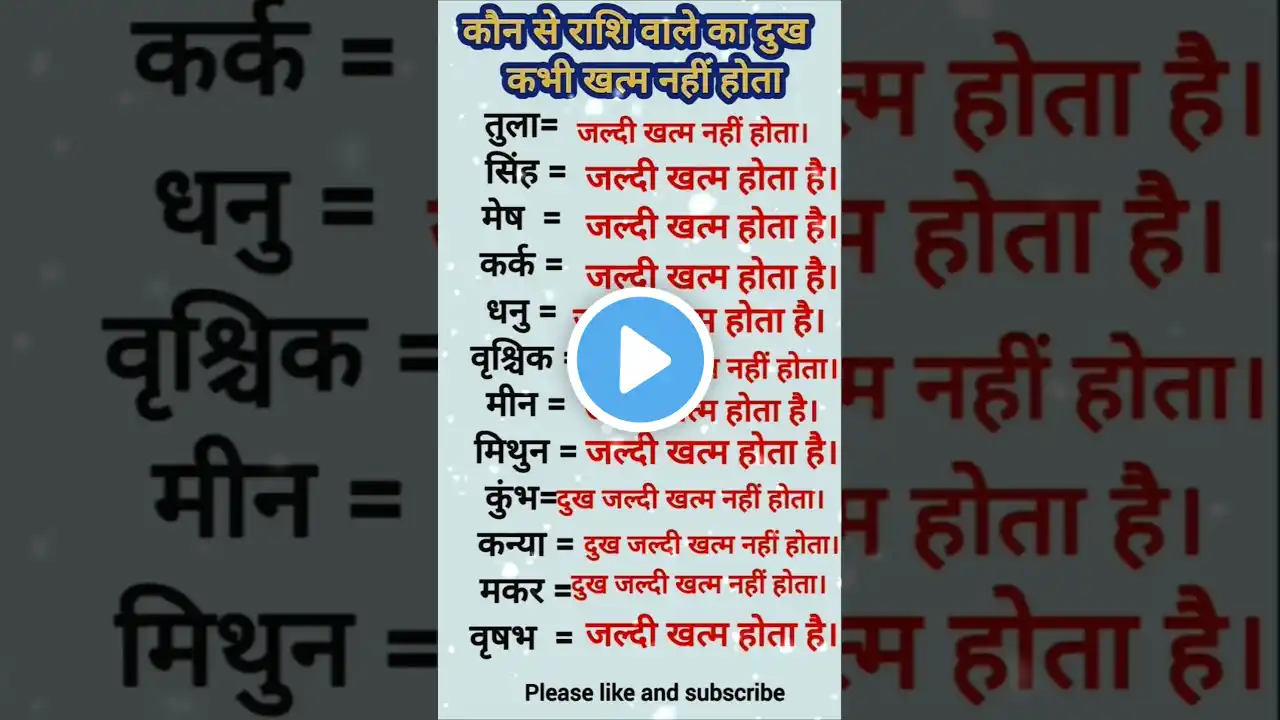 कौन से राशि वाले का दुख
कभी खत्म नहीं होता
तुला= जल्दी खत्म नहीं होता।
सिंह = जल्दी खत्म होता है।
मेष = जल्दी खत्म होता है।
कर्क = जल्दी खत्म होता है।
धनु = होता है।
वृश्चिक = नहीं होता।
मीन = होता है।
मिथुन = जल्दी खत्म होता है।
कुंभ=दुख जल्दी खत्म नहीं होता।
कन्या = दुख जल्दी खत्म नहीं होता।
मकर =दुख जल्दी खत्म नहीं होता।
वृषभ = जल्दी खत्म होता है।
Please like and subscribe
कर्क = होता है।
धनु = होता है।
वृश्चिक = नहीं होता।
मीन = होता है।
मिथुन = होता है।